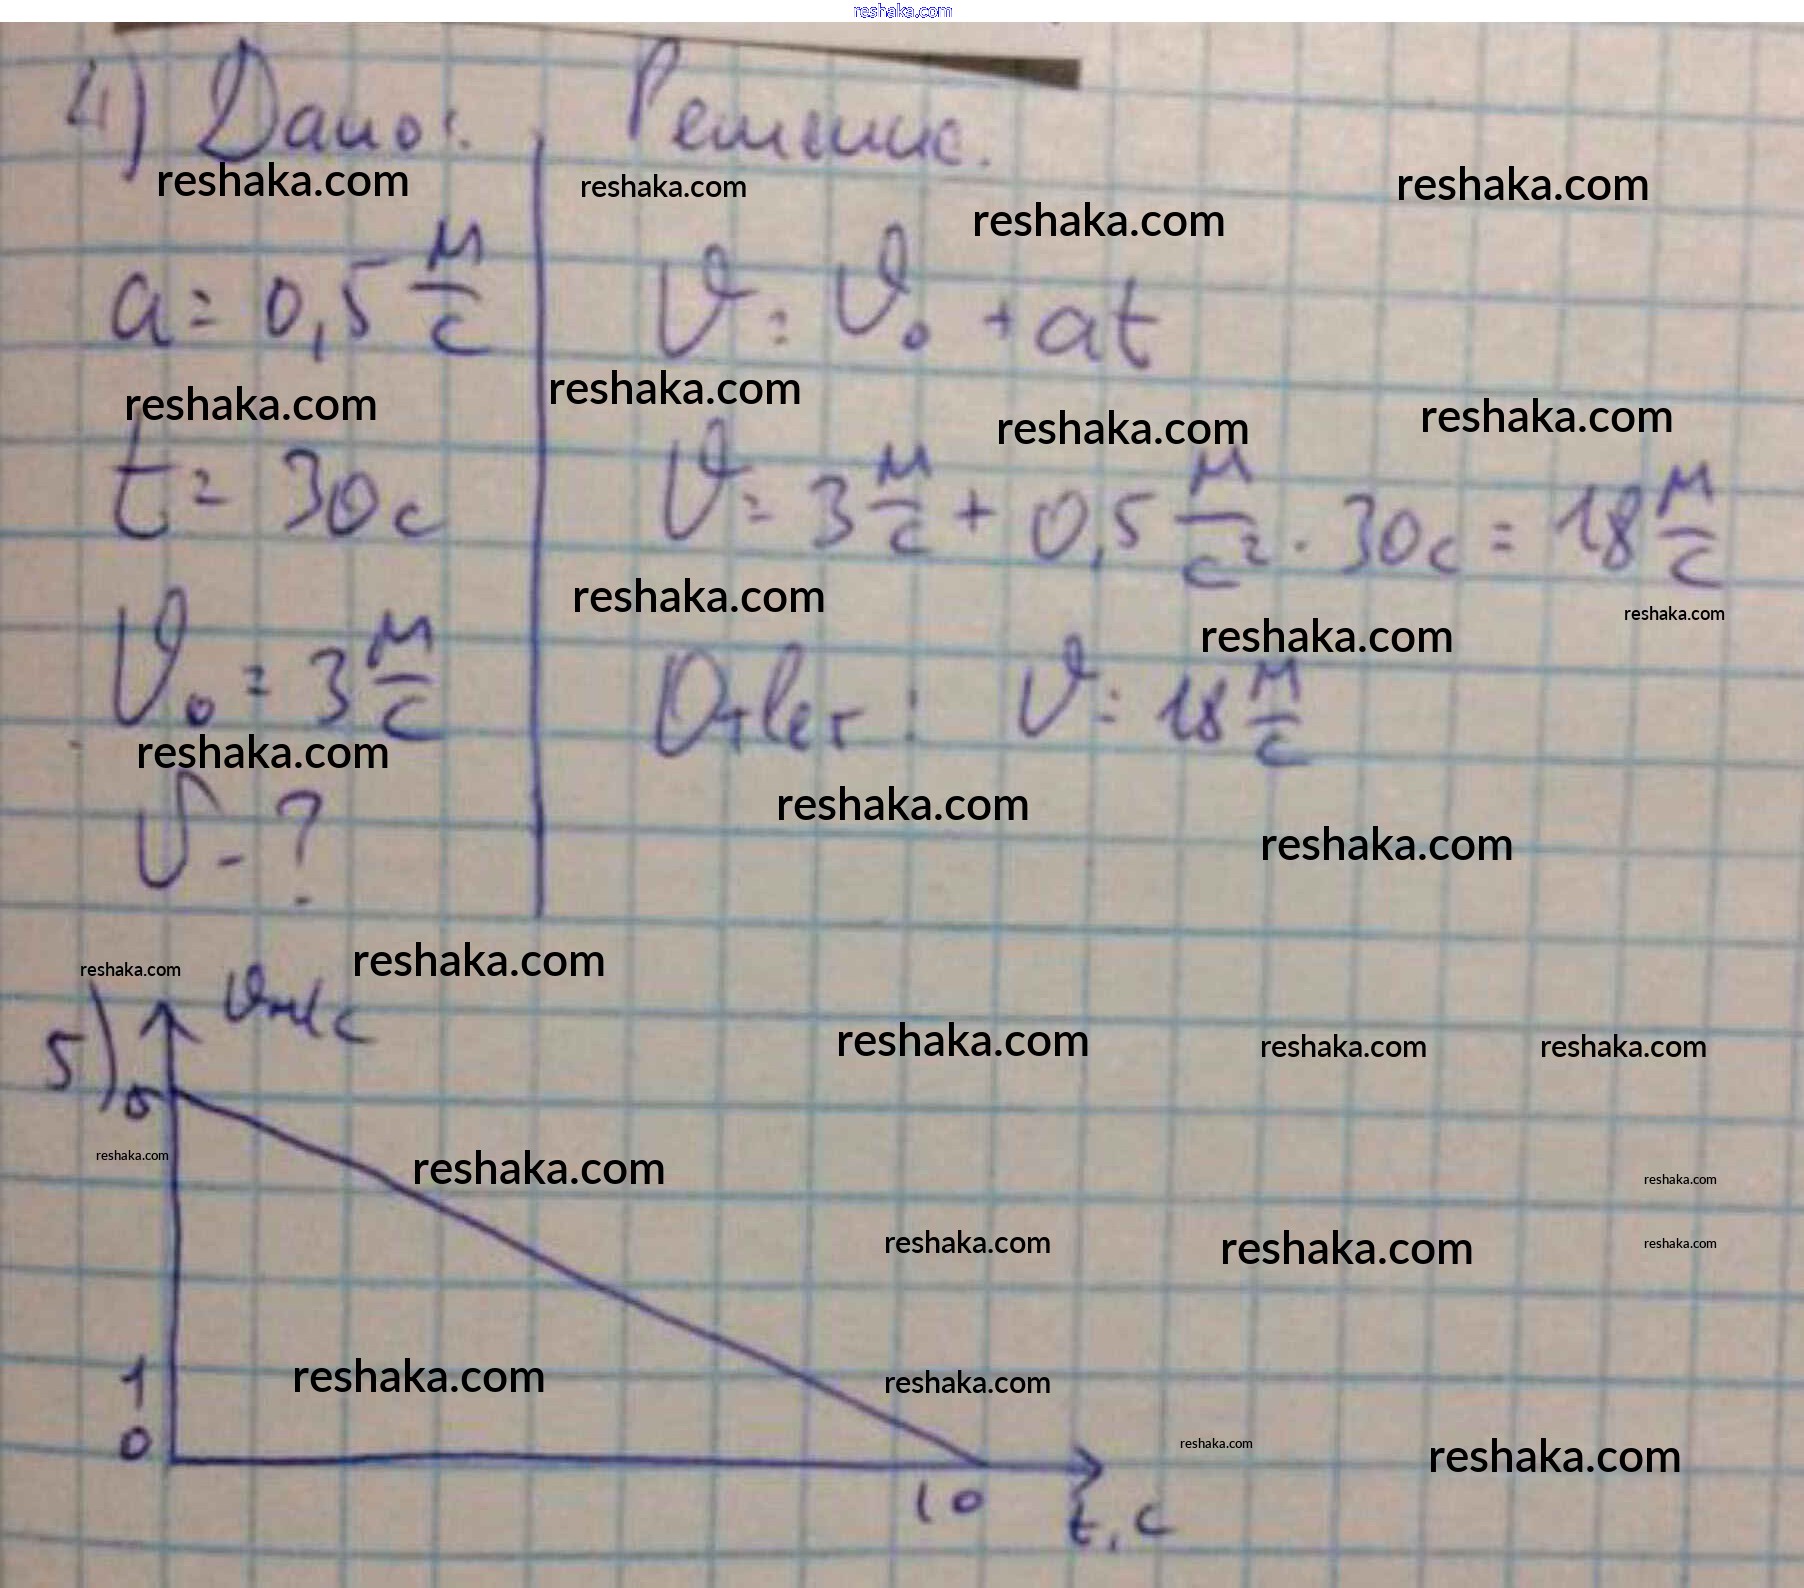 reshaka.com
4) Дано: Решение.
reshaka.com reshaka.com reshaka.com reshaka.com
a = 0,5 м/с v = v₀ + at
reshaka.com reshaka.com reshaka.com reshaka.com
t = 30 с v = 3 м/с + 0,5 м/с² · 30 с = 18 м/с
reshaka.com reshaka.com reshaka.com
v₀ = 3 м/с Ответ: v = 18 м/с
reshaka.com reshaka.com reshaka.com
v - ?
reshaka.com reshaka.com
5) v м/с
reshaka.com reshaka.com reshaka.com
5
reshaka.com reshaka.com reshaka.com
reshaka.com reshaka.com reshaka.com
1 reshaka.com reshaka.com
0 reshaka.com reshaka.com
10 t, с